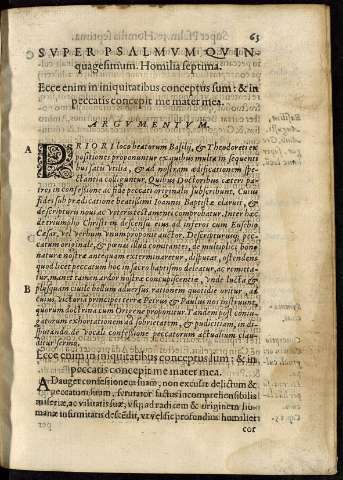 63
SVPER PSALMVM QVIN-
quagesimum. Homilia septima.
Ecce enim in iniquitatibus conceptus sum: & in
peccatis concepit me mater mea.
ARGVMENTVM.
A
PRIORI loco beatorum Basilij, & Theodoreti ex
positiones proponuntur ex quibus multa in sequenti
bus satis vtilia, & ad nostram ædificationem spe-
ctantia colliguntur. Quibus Doctoribus cæteri no-
stri in confessione ac fide peccati originalis subscribunt. Cuius
fides sub prædicatione beatissimi Ioannis Baptistæ claruit, &
descripturis nouis ac veteris testamenti comprobatur. Inter hæc
de triumpho Christi in descensu eius ad inferos cum Eusebio
Cæsar. vel verbum vnum proponit auctor. Descripturum pec-
catum originale, & pœnas illud comitantes, de multiplici bono
naturæ nostræ antequam exterminaretur, disputat, ostendens
quod licet peccatum hoc in sacro baptismo deleatur, ac remitta-
tur, manet tamen ardor nostræ concupiscentiæ, vnde lucta &
B
plusquam ciuile bellum aduersus rationem quotidie oritur, ad
cuius victoriã principes terræ Petrus & Paulus nos instruunt,
quorum doctrina cum Origene probantur. Tandem post coniu-
gatorum exhortationem ad sobrietatem, & pudicitiam, in di-
sputando de vocali confessione peccatorum actualium clau-
ditur sermo.
Ecce enim in iniquitatibus conceptus sum: & in
peccatis concepit me mater mea.
ADauget confessionem suam, non excusat delictum &
peccatum suum, scrutator factus incomprehensibilis
miseriæ, ac vilitatis suæ, vsq; ad radicem & originem hu-
manæ infirmitatis descẽdit, vt velsic profundius humiliet
cor